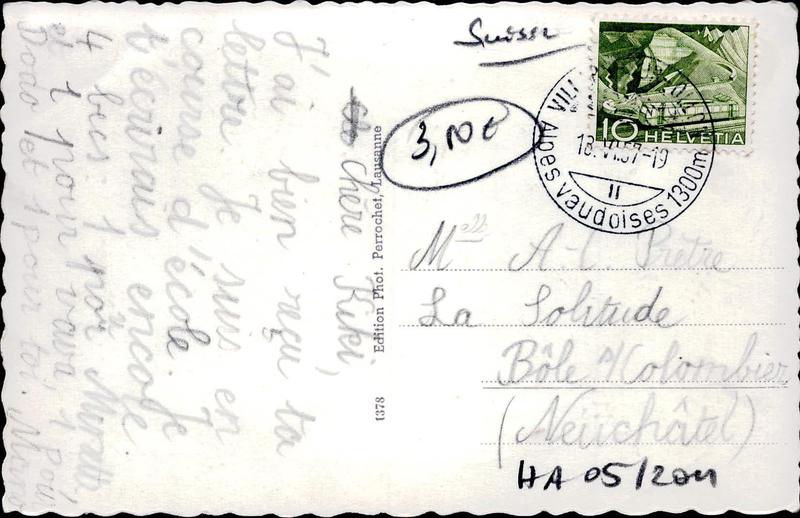 Chère Kiki,
J'ai bien reçu ta
lettre. Je suis en
course d'école. Je
t'écrirais encore
4 bises 1 pour
et 1 pour vava, 1 pour
Dodo et 1 pour toi.
1378 Edition Phot. Perrochet, Lausanne
Suisse
3,10 €
10 HELVETIA
VILL
18.VI.57-19
II
Alpes vaudoises 1300m
Melle A-L. Prêtre
La Solitude
Bôle s/Colombier
(Neuchâtel)
HA 05/2011